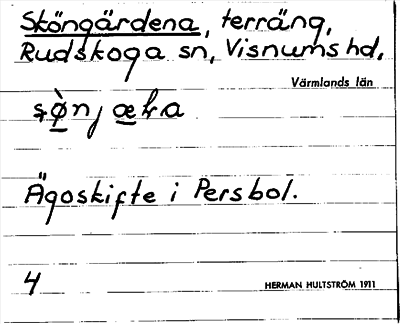 Sköngärdena, terräng,
Rudskoga sn, Visnums hd,
Värmlands län
Ägoskifte i Persbol.
4
HERMAN HULTSTRÖM 1911